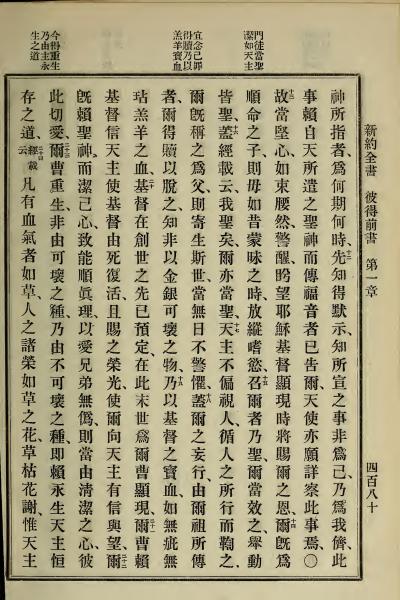 新約全書 彼得前書 第一章 四百八十
門徒當聖
潔如天主
宜念己罪
得贖乃以
羔羊寶血
今得重生
乃由主永
生之道
神所指者、爲何期何時、先知得默示、知所宣之事、非爲己、乃爲我儕、此
事賴自天所遣之聖神、而傳福音者、已告爾、天使亦願詳察此事焉、○
故當堅心、如束腰然、警醒盼望耶穌基督顯現時將賜爾之恩、爾旣爲
順命之子、則毋如昔蒙昧之時、放縱嗜慾、召爾者乃聖、爾當效之、舉動
皆聖、蓋經載云、我聖矣、爾亦當聖、天主不偏視人、循人之所行而鞫之、
爾旣稱之爲父、則寄生斯世、當無日不警懼、蓋爾之妄行、由爾祖所傳
者、爾得贖以脫之、知非以金銀可壞之物、乃以基督之寶血、如無疵無
玷羔羊之血、基督在創世之先已預定、在此末世爲爾曹顯現、爾曹賴
基督信天主、使基督由死復活、且賜之榮光、使爾向天主有信與望、爾
旣賴聖神而潔己心、致能順眞理、以愛兄弟無僞、則當由清潔之心彼
此切愛、爾曹重生、非由可壞之種、乃由不可壞之種、卽賴永生天主恒
存之道、經載云凡有血氣者如草、人之諸榮如草之花、草枯花謝、惟天主